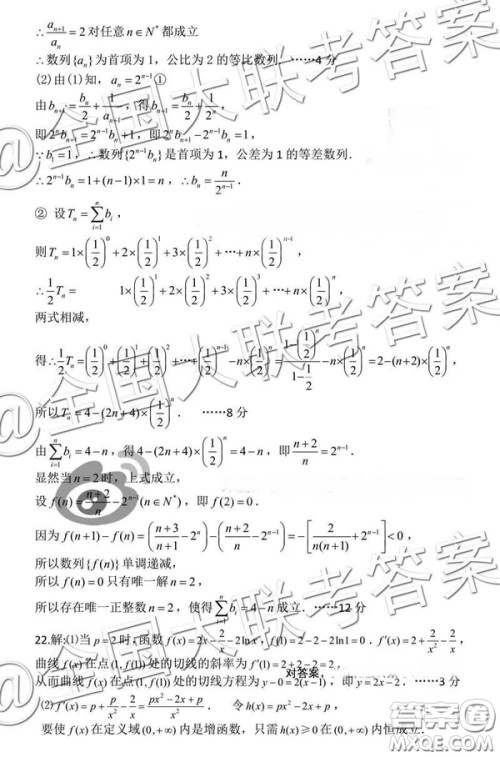 ∴ a_{n+1}/a_n = 2 对任意 n∈N* 都成立
∴数列{a_n}为首项为 1，公比为 2 的等比数列．……4 分
(2)由(1)知，a_n=2^{n-1}①
由 b_{n+1}/2 … 得 b_{n+1}=b_n/2+1/2^n，
即 2^n b_{n+1}=2^{n-1}b_n+1，即 2^n b_{n+1}-2^{n-1}b_n=1，
∵b_1=1，∴数列{2^{n-1}b_n}是首项为 1，公差为 1 的等差数列．
∴2^{n-1}b_n=1+(n-1)×1=n，∴b_n=n/2^{n-1}．
② 设 T_n=∑_{i=1}^{n} b_i，
则 T_n=1×(1/2)^0+2×(1/2)^1+3×(1/2)^2+…+n×(1/2)^{n-1}，
∴1/2 T_n= 1×(1/2)^1+2×(1/2)^2+3×(1/2)^3+…+n×(1/2)^n，
两式相减，
得∴1/2 T_n=(1/2)^0+(1/2)^1+(1/2)^2+…+(1/2)^{n-1}-n×(1/2)^n=(1-(1/2)^n)/(1-1/2)-n×(1/2)^n=2-(n+2)×(1/2)^n，
所以 T_n=4-(2n+4)×(1/2)^n．……8 分
由∑_{i=1}^{n} b_i=4-n，得 4-(2n+4)×(1/2)^n=4-n，即 (n+2)/n=2^{n-1}．
显然当 n=2 时，上式成立，
设 f(n)=(n+2)/n-2^{n-1}(n∈N*)，即 f(2)=0．
因为 f(n+1)-f(n)=((n+3)/(n+1)-2^n)-((n+2)/n-2^{n-1})=-[2/(n(n+1))+2^{n-1}]<0，
所以数列{f(n)}单调递减，
所以 f(n)=0 只有唯一解 n=2，
所以存在唯一正整数 n=2，使得∑_{i=1}^{n} b_i=4-n 成立．……12 分
22.解:⑴当 p=2 时,函数 f(x)=2x-2/x-2lnx，f(1)=2-2-2ln1=0．f′(x)=2+2/x²-2/x，
曲线 f(x)在点(1,f(1))处的切线的斜率为 f′(1)=2+2-2=2．
从而曲线 f(x)在点(1,f(1))处的切线方程为 y-0=2(x-1)，即 y=2x-2．……3 分
⑵ f′(x)=p+p/x²-2/x=(px²-2x+p)/x²． 令 h(x)=px²-2x+p，
要使 f(x)在定义域(0,+∞)内是增函数，只需 h(x)≥0 在(0,+∞)内恒成立．
@全国大联考答案
@全国大联考答案
对答案
答案圈